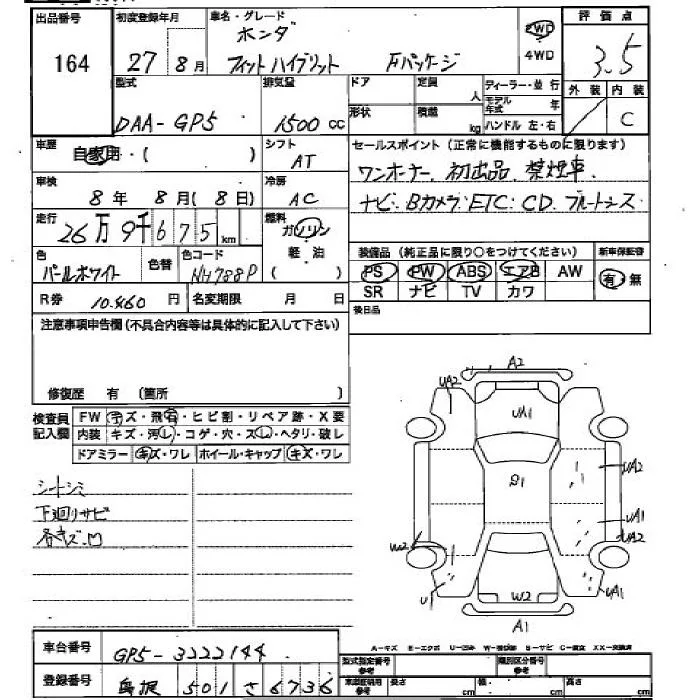 出品番号 初度登録年月 車名・グレード 評価点
164 27 8月 ホンダ 2WD 3.5
フィットハイブリット Fパッケージ 4WD
型式 排気量 ドア 定員 人 ディーラー・並行 外装 内装
DAA-GP5 1500cc 形状 積載 kg モデル年式 年 C
ハンドル 左・右
車歴 自家用・( ) シフト AT セールスポイント(正常に機能するものに限ります)
ワンオーナー. 初出品. 禁煙車.
車検 8年 8月(8日) 冷房 AC ナビ・Bカメラ・ETC・CD. ブルートゥース
走行 26万9千675km 燃料 ガソリン 軽・油 ( )
装備品(純正品に限り○をつけてください) 新車保証書
色 パールホワイト 色替 色コード NH788P
PS PW ABS エアB AW 有・無
SR ナビ TV カワ
R券 10.460円 名変期限 月 日 後日品
注意事項申告欄(不具合内容等は具体的に記入して下さい)
修復歴 有 〔箇所 〕
検査員記入欄 FW キズ・飛石・ヒビ割・リペア跡・X要
内装 キズ・汚レ・コゲ・穴・スレ・ヘタリ・破レ
ドアミラー キズ・ワレ ホイール・キャップ キズ・ワレ
シートシミ
下廻りサビ
各キズ.凹
A2
UA2
UA1
S1
UA2
UA1
UA2
W2
U1
W2
UA1
A1
A-キズ E-エクボ U-凹み W-補修跡 S-サビ C-腐食 XX-交換済
車台番号 GP5-3222144
型式指定番号 参考 類別区分番号 参考
登録番号 島根 501 さ 6736
車庫証明用 参考 長さ cm 幅 cm 高さ cm